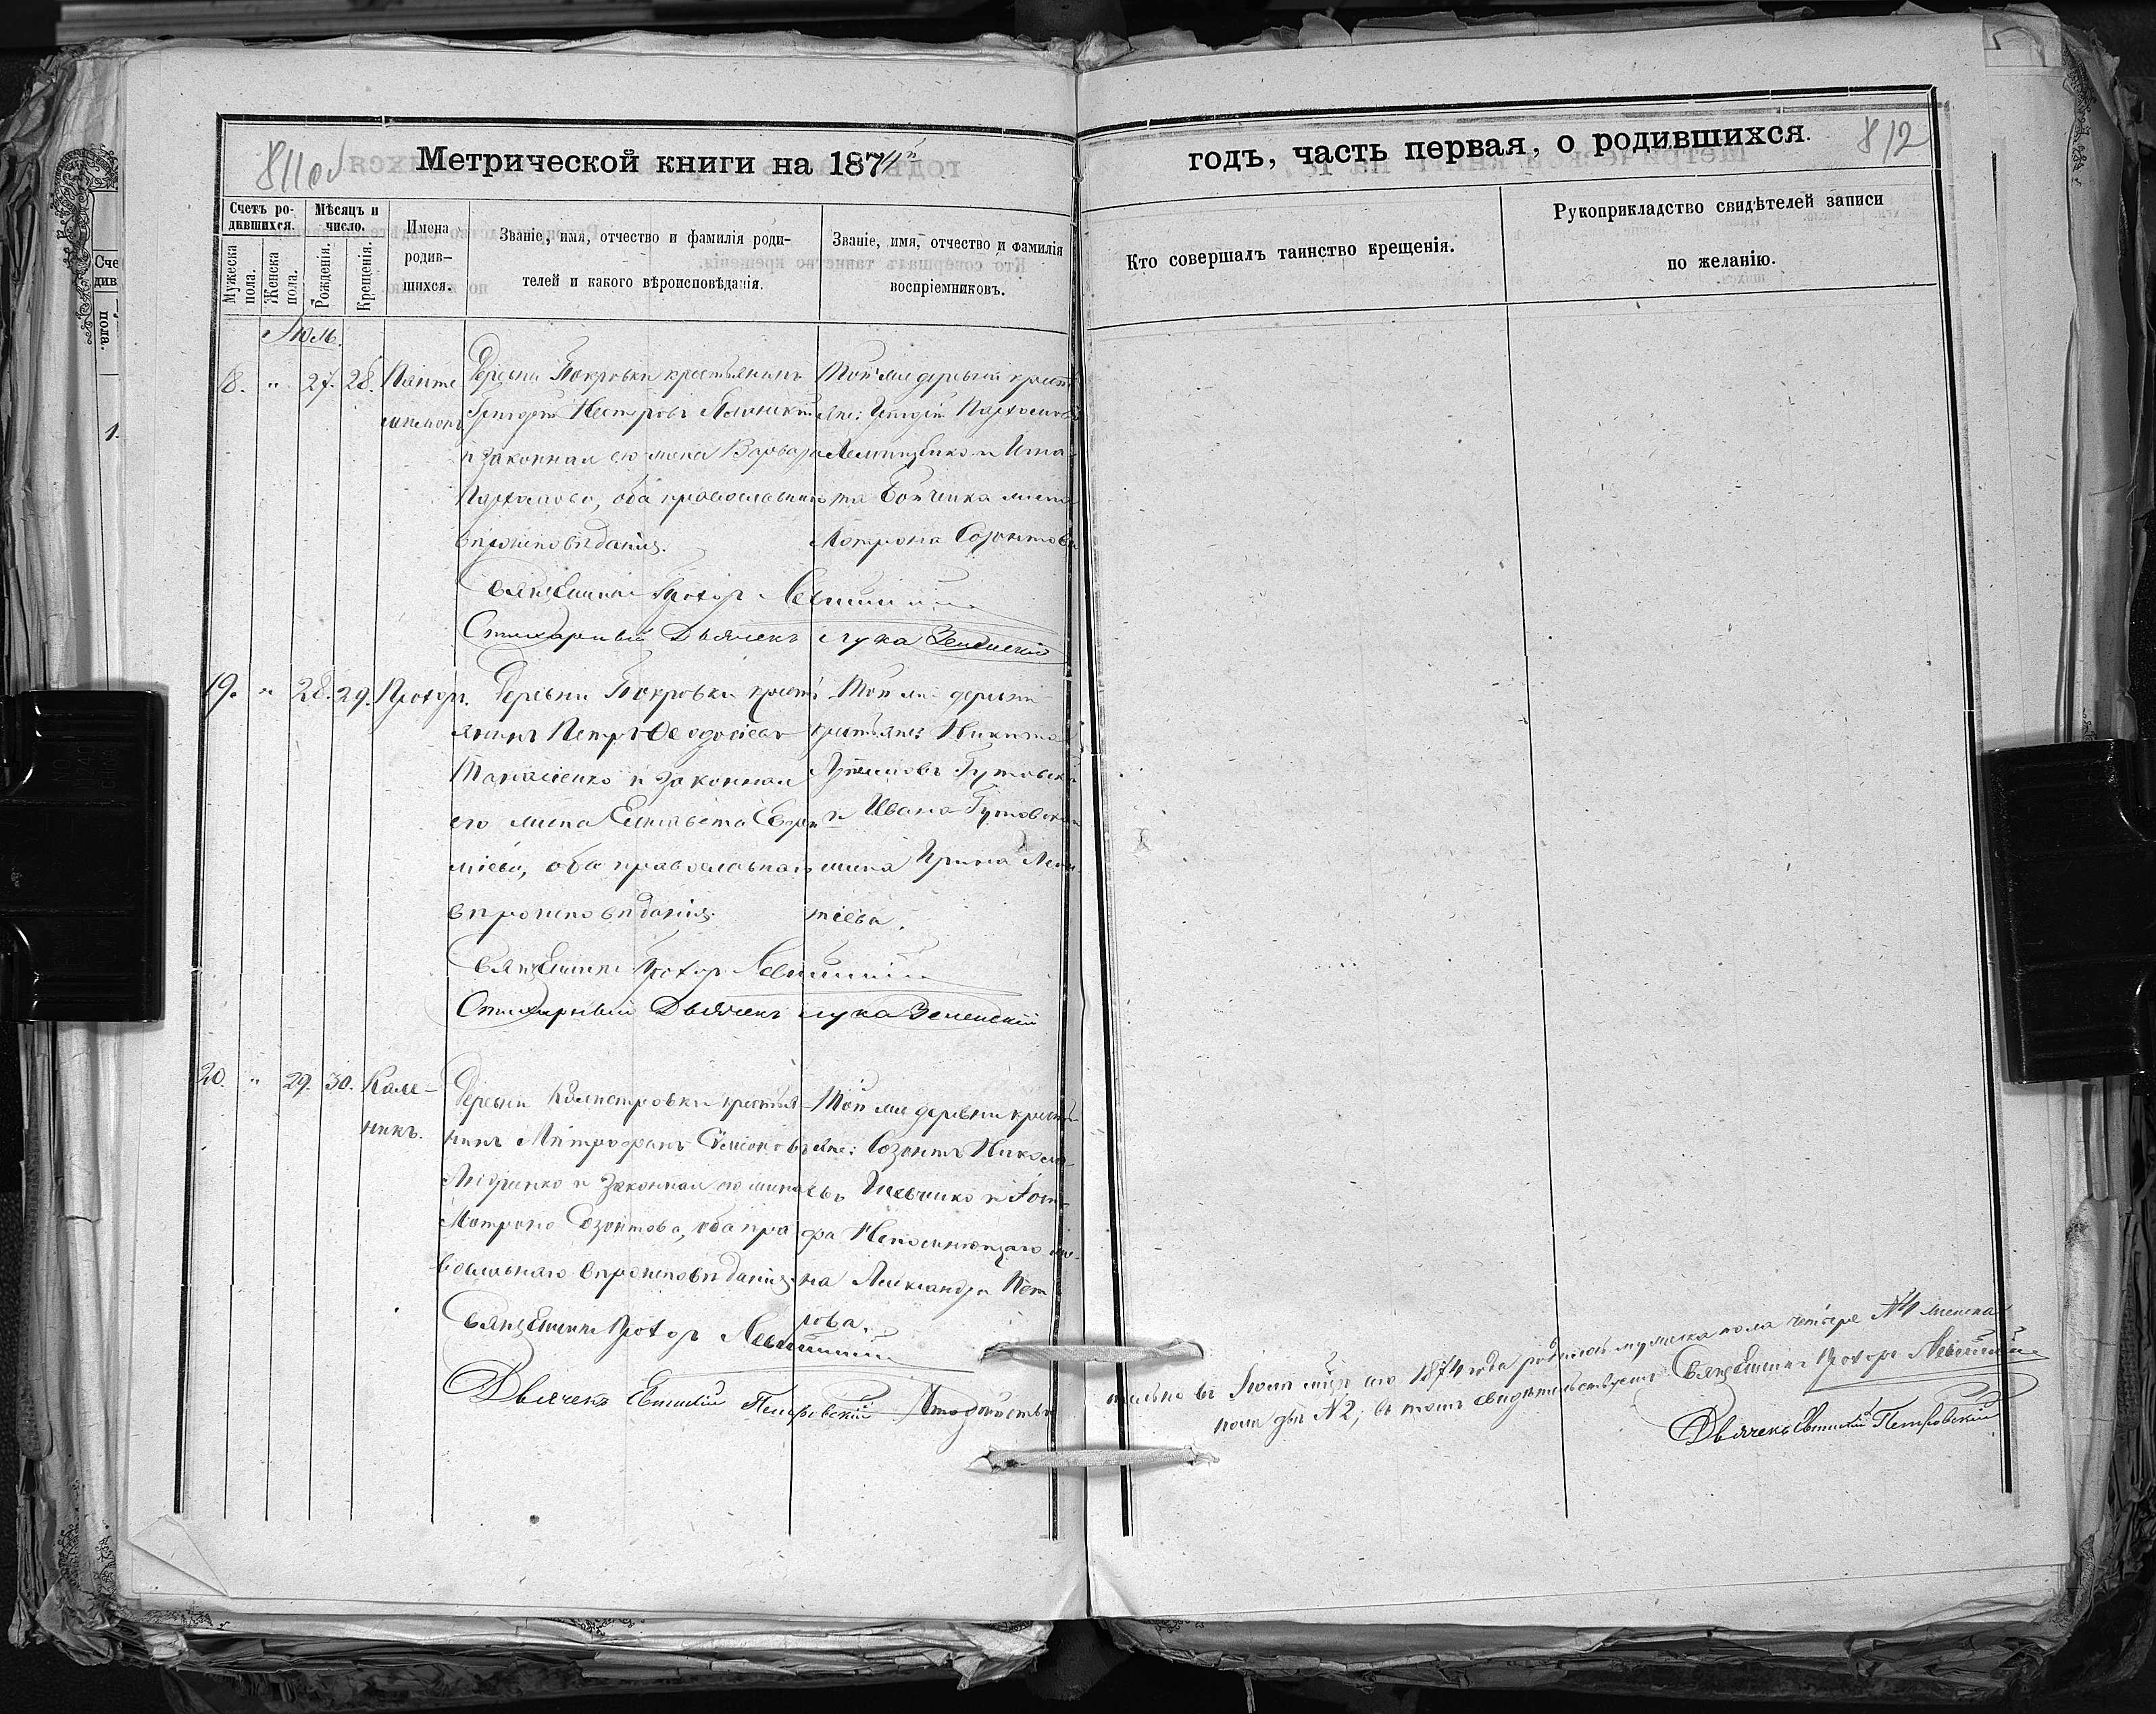 811об
Метрической книги на 1874й
годъ, часть первая, о родившихся.
812
Счетъ родившихся.
Мужеска пола.
Женска пола.
Мѣсяцъ и число.
Рожденія.
Крещенія.
Имена родив-
шихся.
Званіе, имя, отчество и фамилія роди-
телей и какого вѣроисповѣданія.
Званіе, имя, отчество и фамилія
воспріемниковъ.
Кто совершалъ таинство крещенія.
Рукоприкладство свидѣтелей записи
по желанію.
Іюль.
18. " 27. 28. Панте
лимонъ
Деревни Покровки крестьянинъ
Григорій Несторовъ
и законная его жена Варвара
Пахомова, оба православнаго
вѣроисповѣданія.
Той же деревни крестья
не: Пахомовъ
и Игна
та Бойченка жена
Матрона Созонтова
Священникъ Прохоръ Левицкій
Стихарный Дьячекъ Лука Зеленскій
19. " 28. 29. Прохоръ.
Деревни Покровки кресть
янинъ Петръ Феодосіевъ
Танасіенко и законная
его жена Елисавета Евфи
міева, оба православнаго
вѣроисповѣданія.
Той же деревни
крестьяне: Никита
Гутовскій
и Ивана Гутовскаго
жена Ирина Леон
тіева.
Священникъ Прохоръ Левицкій
Стихарный Дьячекъ Лука Зеленскій
20. " 29. 30. Кале-
никъ.
Деревни крестья
нинъ Митрофанъ Симеоновъ
Андріенко и законная его жена
Матрона Созонтова, оба пра
вославнаго вѣроисповѣданія.
Той же деревни кресть
яне: Созонтъ Никола
евъ Ильченко и Іоси
фа Непомнющаго же-
на Александра Пет
рова.
Священникъ Прохоръ Левицкій
Дьячекъ Евтихій Петровскій
Что дѣйстви
тельно въ Іюлѣ мцѣ сего 1874 года родилось мужеска пола четыре №4 женска
пола двѣ №2, въ томъ свидѣтельствуемъ Священникъ Прохоръ Левицкій
Дьячекъ Евтихій Петровскій